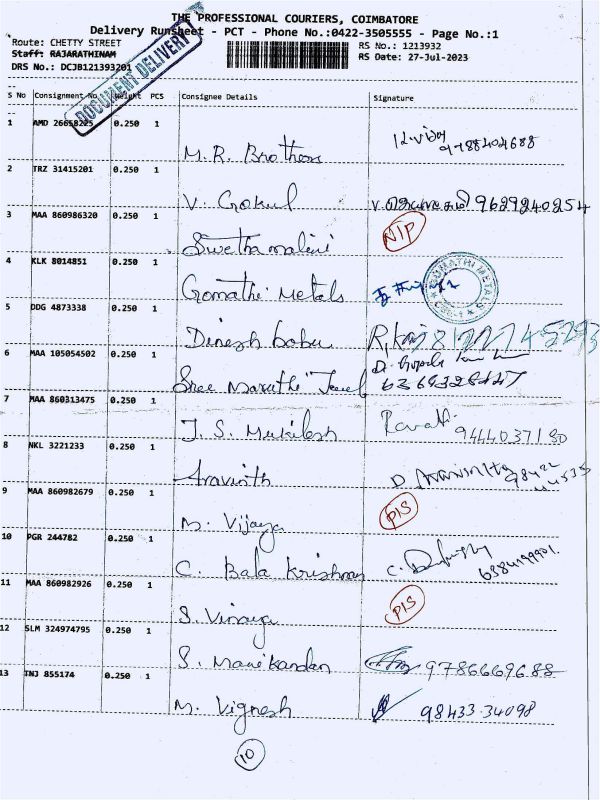 THE PROFESSIONAL COURIERS, COIMBATORE
Delivery Runsheet - PCT - Phone No.:0422-3505555 - Page No.:1
Route: CHETTY STREET
RS No.: 1213932
Staff: RAJARATHINAM
RS Date: 27-Jul-2023
DRS No.: DCJB121393201
DOCUMENT DELIVERY
S No Consignment No. Weight PCS Consignee Details Signature
1 AMD 26658225 0.250 1 M. R. Brothers 9788404688
2 TRZ 31415201 0.250 1 V. Gokul 9629240254
3 MAA 860986320 0.250 1 Swethamalini NIP
4 KLK 8014851 0.250 1 Gomathi Metals GOMATHI METALS
5 DDG 4873338 0.250 1 Dinesh babu
6 MAA 105054502 0.250 1 Sree Maruthi Jewel
7 MAA 860313475 0.250 1 J. S. Mukilesh Revathi 9444037130
8 NKL 3221233 0.250 1 Aravinth
9 MAA 860982679 0.250 1 M. Vijaya PIS
10 PGR 244782 0.250 1 C. Bala Krishnan
11 MAA 860982926 0.250 1 S. Vinaya PIS
12 SLM 324974795 0.250 1 S. Manikandan 9786669688
13 TNJ 855174 0.250 1 M. Vignesh 98433 34098
10